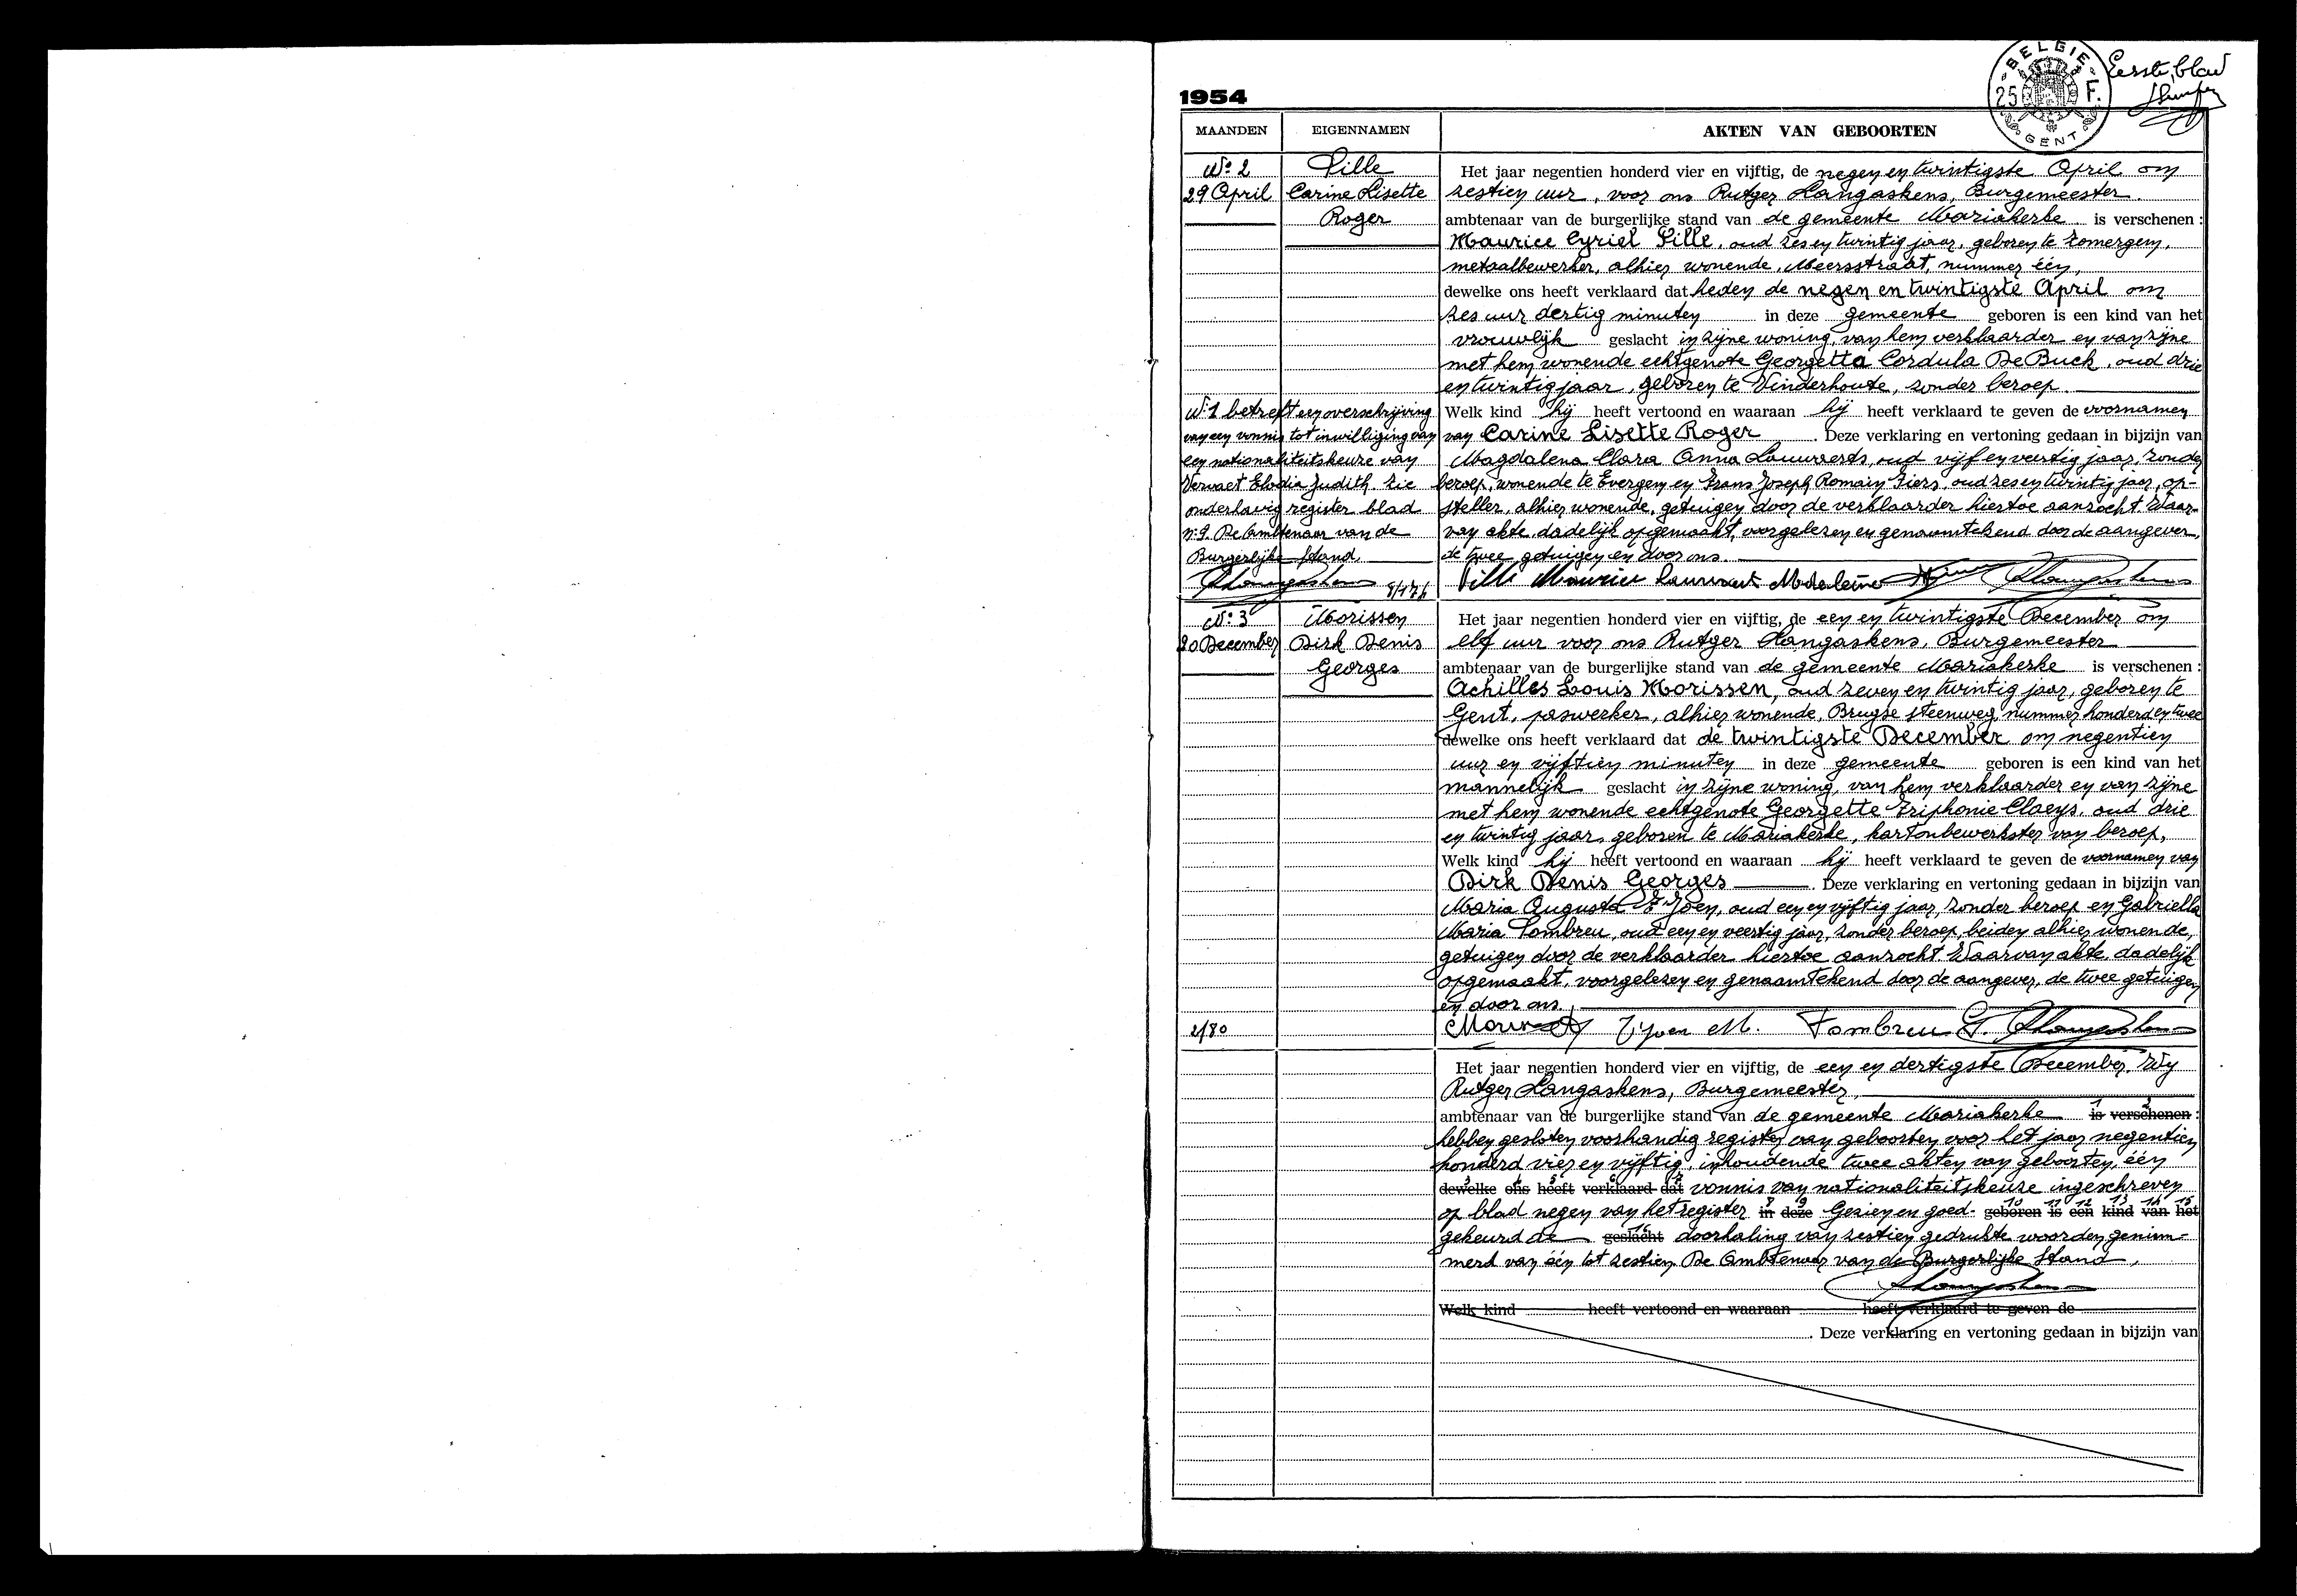 1954
BELGIE
25 F.
GENT
Eerste blad
MAANDEN EIGENNAMEN AKTEN VAN GEBOORTEN
N: 2
29 April
Lille
Carine Lisette
Roger
Het jaar negentien honderd vier en vijftig, de negen en twintigste April om
zestien uur, voor ons Rutger Langaskens, Burgemeester
ambtenaar van de burgerlijke stand van de gemeente Mariakerke is verschenen :
Maurice Cyriel Lille, oud zes en twintig jaar, geboren te Zomergem,
metaalbewerker, alhier wonende, Meersstraat, nummer één,
dewelke ons heeft verklaard dat heden de negen en twintigste April om
zes uur dertig minuten in deze gemeente geboren is een kind van het
vrouwelijk geslacht in zijne woning, van hem verklaarder en van zijne
met hem wonende echtgenote Georgetta Cordula De Buck, oud drie
en twintig jaar, geboren te Vinderhoute, zonder beroep.
Welk kind hij heeft vertoond en waaraan hij heeft verklaard te geven de voornamen
van Carine Lisette Roger . Deze verklaring en vertoning gedaan in bijzijn van
Magdalena Clara Anna Lauwaerts, oud vijf en veertig jaar, zonder
beroep, wonende te Evergem en Frans Joseph Romain Fiers, oud zes en twintig jaar, op-
steller, alhier wonende, getuigen door de verklaarder hiertoe aanzocht. Waar-
van akte, dadelijk opgemaakt, voorgelezen en genaamtekend door de aangever,
de twee getuigen en door ons.
N: 1 betreft een overschrijving
van een vonnis tot inwilliging van
een nationaliteitskeuze van
Vervaet Elodia Judith. Zie
onderhavig register blad
n: 9. De Ambtenaar van de
Burgerlijke Stand,
Lille Maurice
N: 3
20 December
Morissen
Dirk Denis
Georges
Het jaar negentien honderd vier en vijftig, de een en twintigste December om
elf uur voor ons Rutger Langaskens, Burgemeester
ambtenaar van de burgerlijke stand van de gemeente Mariakerke is verschenen :
Achilles Louis Morissen, oud zeven en twintig jaar, geboren te
Gent, paswerker, alhier wonende, Brugse steenweg, nummer honderd en twee
dewelke ons heeft verklaard dat de twintigste December om negentien
uur en vijftien minuten in deze gemeente geboren is een kind van het
mannelijk geslacht in zijne woning, van hem verklaarder en van zijne
met hem wonende echtgenote Georgette Triphonie Claeys, oud drie
en twintig jaar, geboren te Mariakerke, kartonbewerkster van beroep,
Welk kind hij heeft vertoond en waaraan hij heeft verklaard te geven de voornamen van
Dirk Denis Georges . Deze verklaring en vertoning gedaan in bijzijn van
Maria Augusta , oud een en vijftig jaar, zonder beroep en Gabriella
Maria Tombreu, oud een en veertig jaar, zonder beroep, beiden alhier wonende,
getuigen door de verklaarder hiertoe aanzocht. Waarvan akte, dadelijk
opgemaakt, voorgelezen en genaamtekend door de aangever, de twee getuigen
en door ons.
2/80
M. Tombreu G.
Het jaar negentien honderd vier en vijftig, de een en dertigste December, Wij
Rutger Langaskens, Burgemeester,
ambtenaar van de burgerlijke stand van de gemeente Mariakerke is verschenen :
hebben gesloten voorhandig register van geboorten voor het jaar negentien
honderd vier en vijftig, inhoudende twee akten van geboorten, één
dewelke ons heeft verklaard dat vonnis van nationaliteitskeuze ingeschreven
op blad negen van het register in deze Gezien en goed- geboren is een kind van het
gekeurd de geslacht doorhaling van zestien gedrukte woorden genum-
merd van één tot zestien. De Ambtenaar van de Burgerlijke Stand,
Welk kind heeft vertoond en waaraan heeft verklaard te geven de
. Deze verklaring en vertoning gedaan in bijzijn van